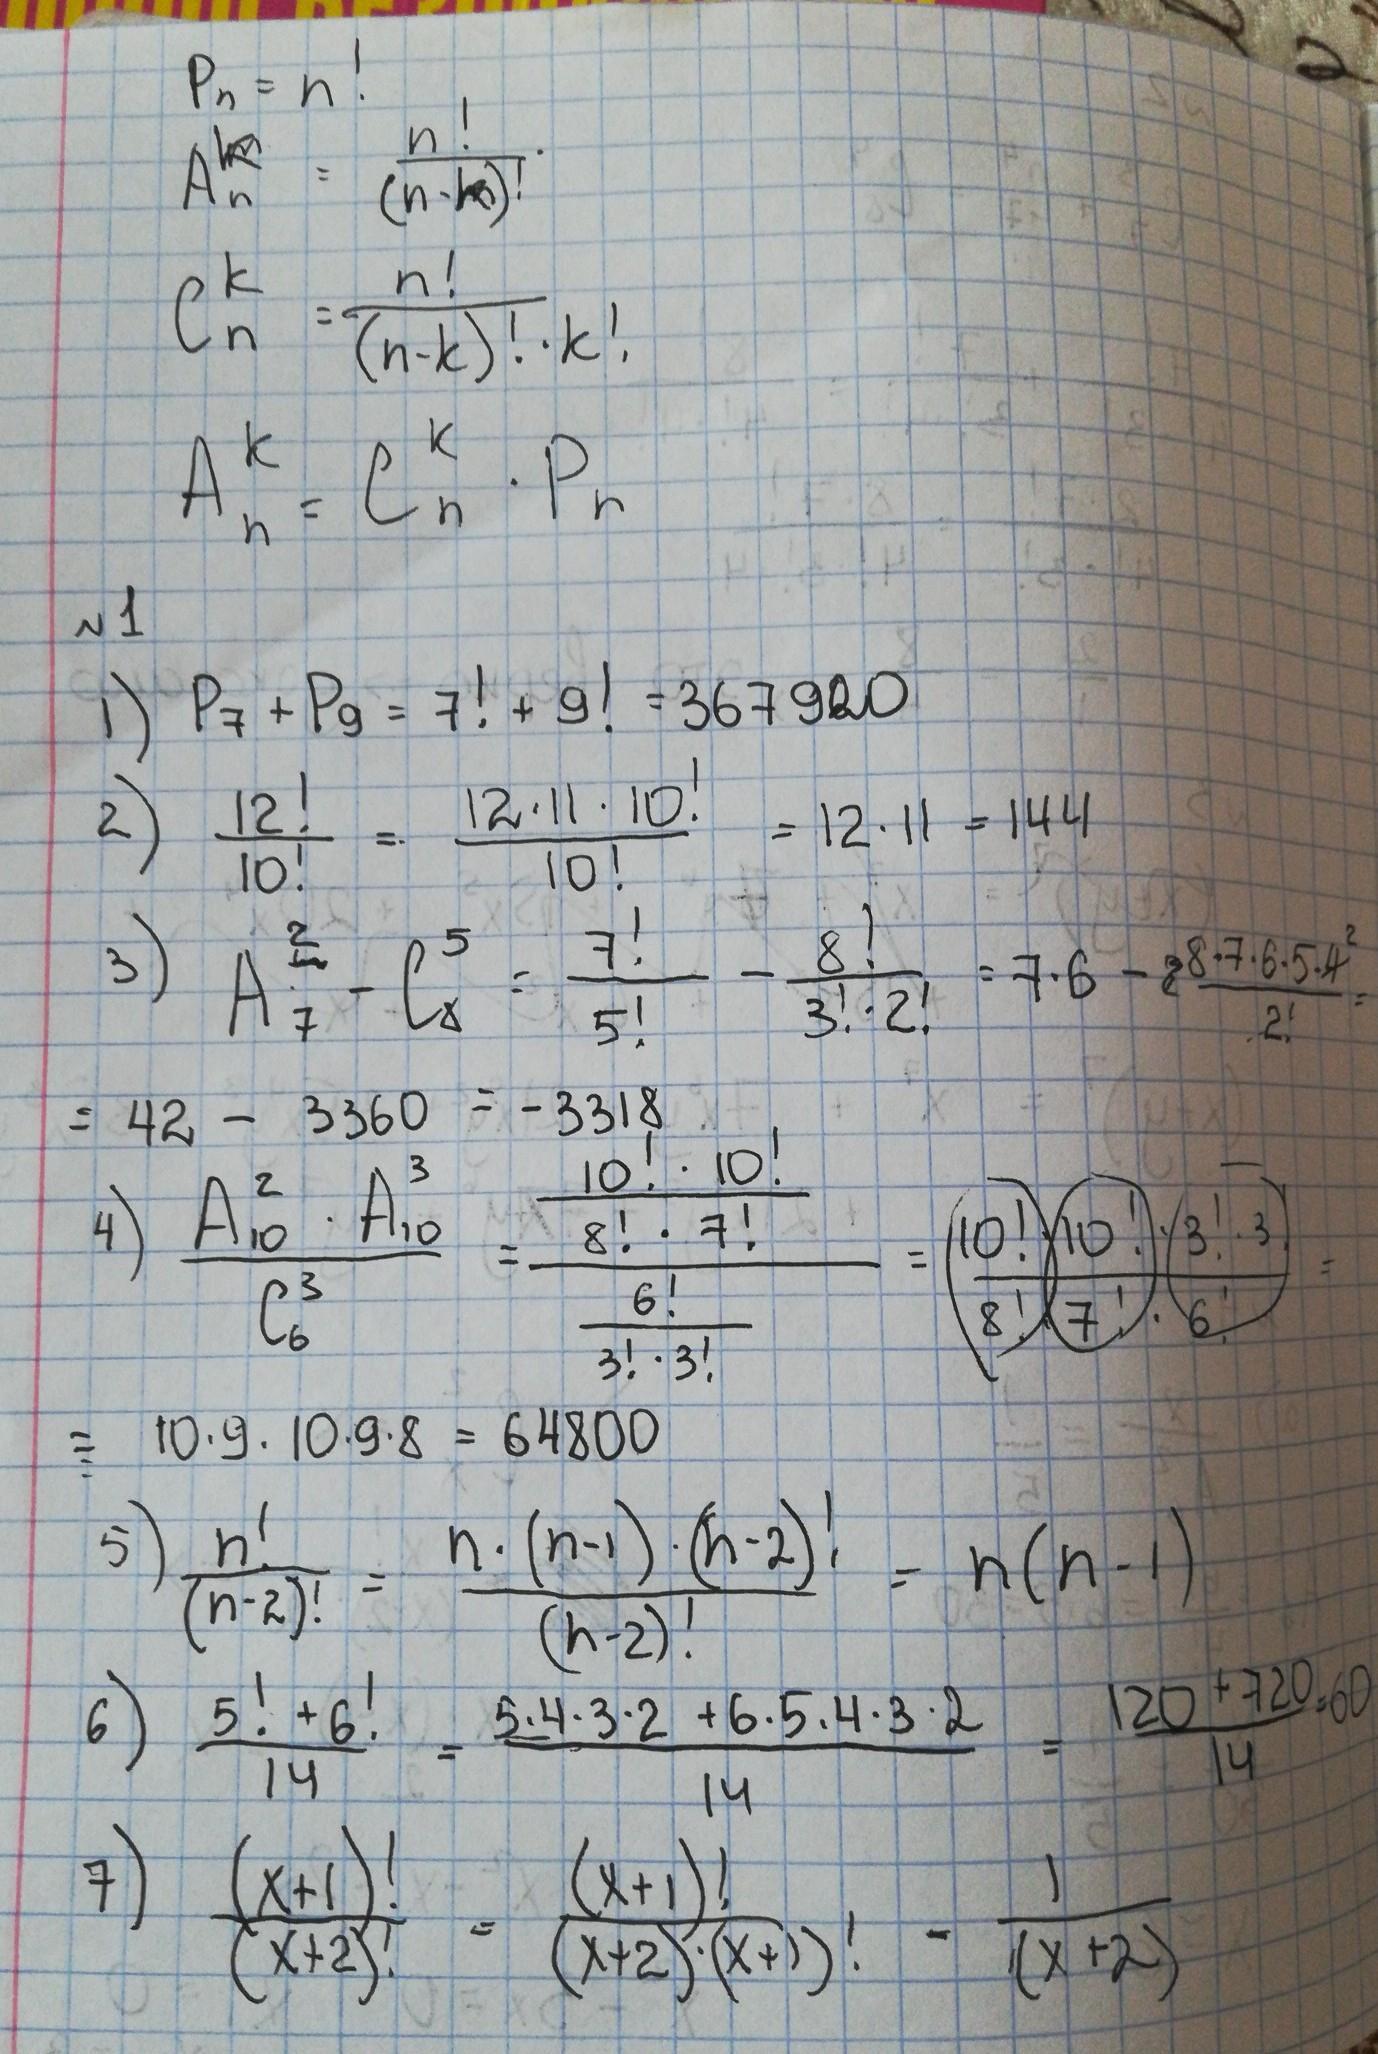 Pₙ = n!
Aₙᵏ = n! / (n-k)!
Cₙᵏ = n! / ((n-k)!·k!)
Aₙᵏ = Cₙᵏ · Pₙ
№1
1) P₇ + P₉ = 7! + 9! = 367920
2) 12!/10! = (12·11·10!)/10! = 12·11 = 144
3) A₇² - C₈⁵ = 7!/5! - 8!/(3!·2!) = 7·6 - (8·7·6·5·4²)/2! =
= 42 - 3360 = -3318
4) (A₁₀² · A₁₀³)/C₆³ = ((10!·10!)/(8!·7!))/(6!/(3!·3!)) = (10! 10!·3!·3!)/(8! 7!·6!) =
= 10·9·10·9·8 = 64800
5) n!/(n-2)! = (n·(n-1)·(n-2)!)/(n-2)! = n(n-1)
6) (5!+6!)/14 = (5·4·3·2 + 6·5·4·3·2)/14 = (120+720)/14 = 60
7) (x+1)!/(x+2)! = (x+1)!/((x+2)·(x+1)!) = 1/(x+2)